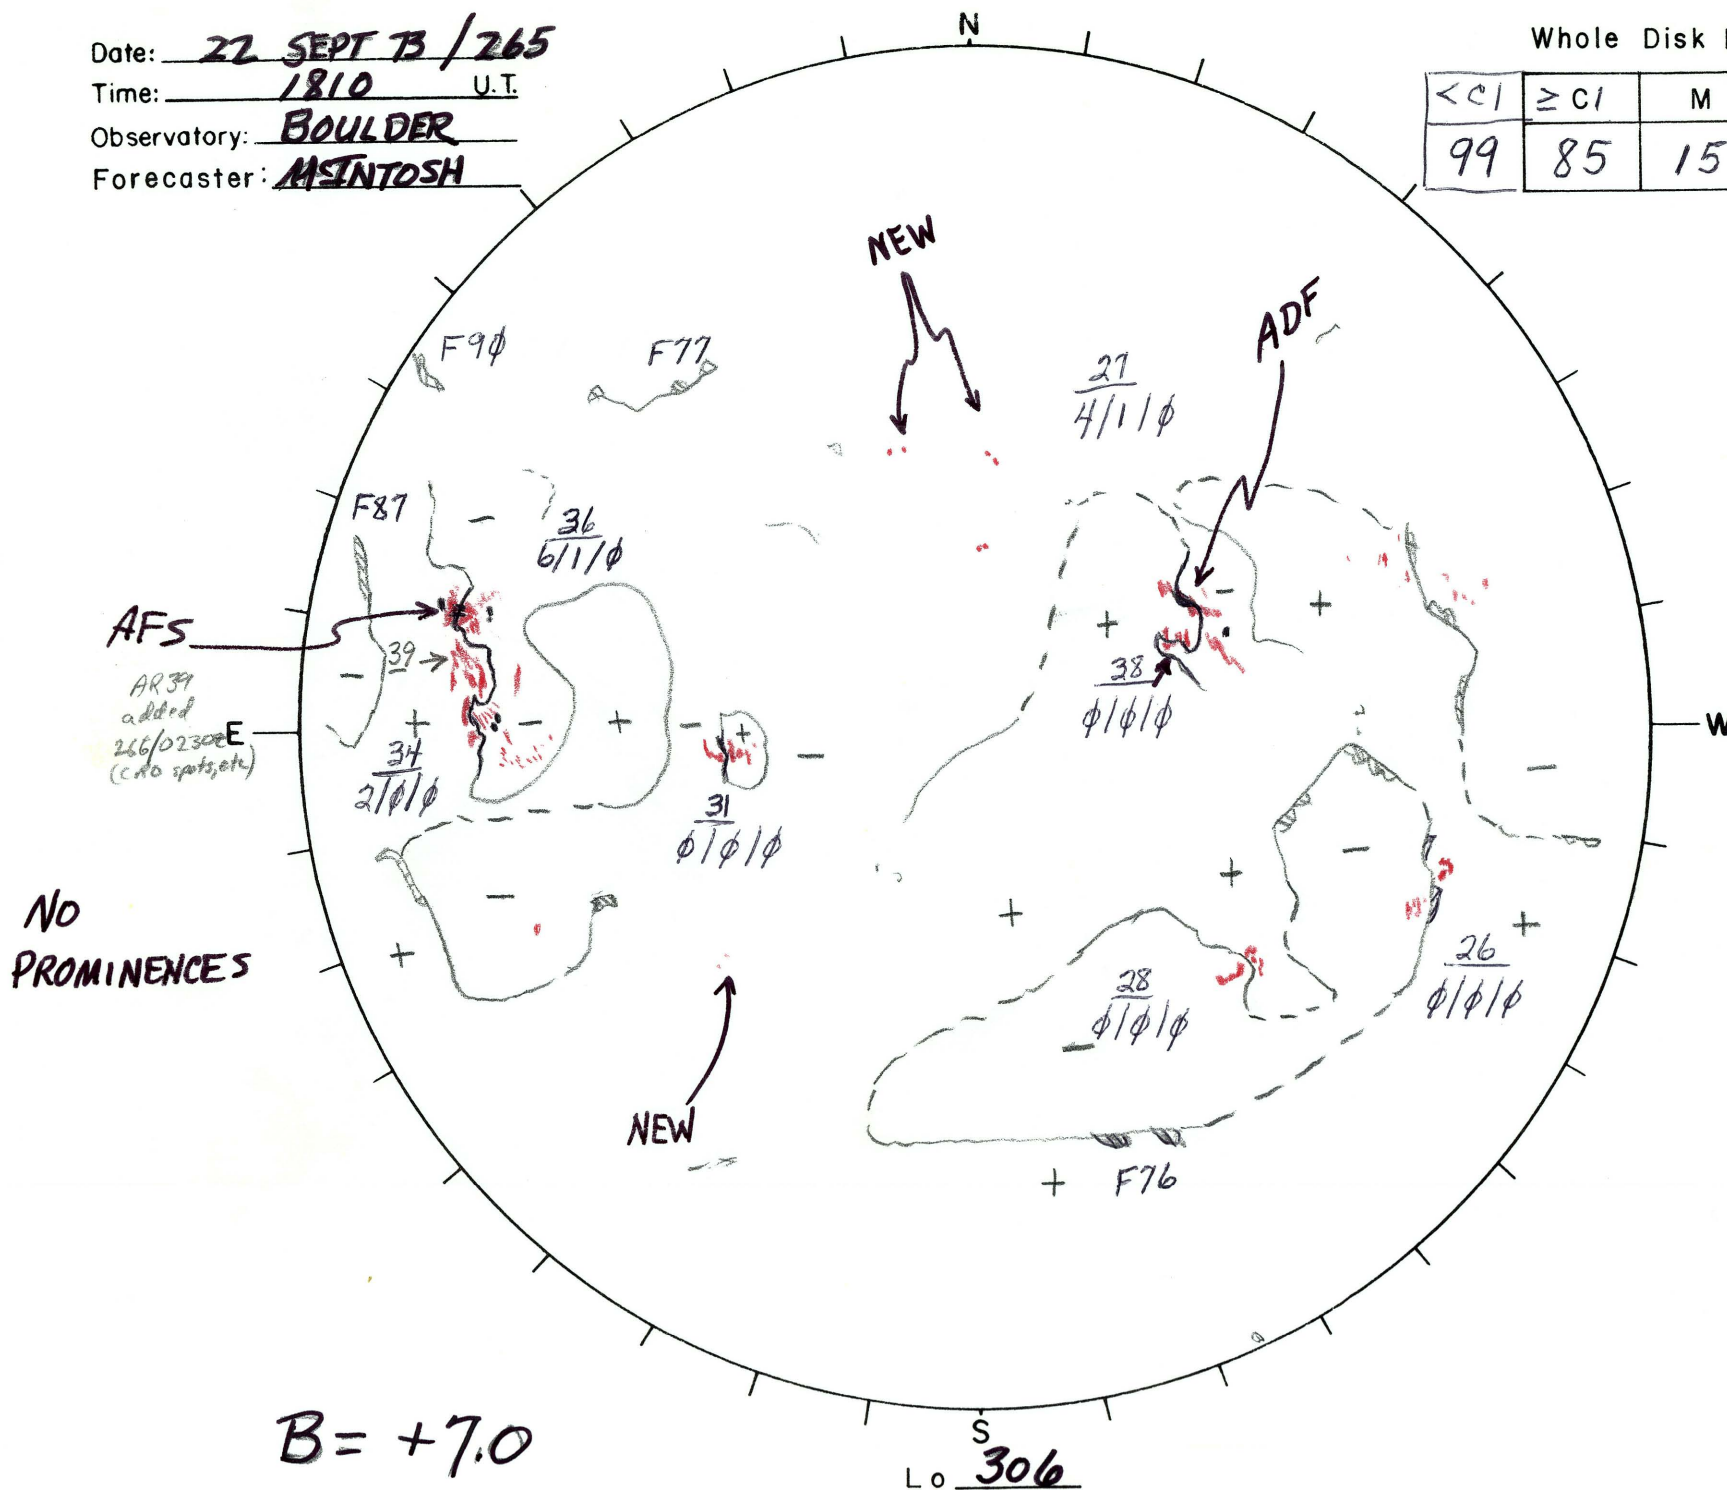 Date: 22 SEPT 73 / 265
Time: 1810 U.T.
Observatory: BOULDER
Forecaster: MCINTOSH
N
Whole Disk
<C1 ≥C1 M
99 85 15
NEW
ADF
F9ϕ
F77
27
4/1/ϕ
F87
36
6/1/ϕ
AFS
39
AR 39
added
266/0230z
(CRO spots, etc)
E
W
38
ϕ/ϕ/ϕ
34
2/ϕ/ϕ
31
ϕ/ϕ/ϕ
NO
PROMINENCES
26
ϕ/ϕ/ϕ
28
ϕ/ϕ/ϕ
NEW
F76
B= +7.0
S
Lo 306